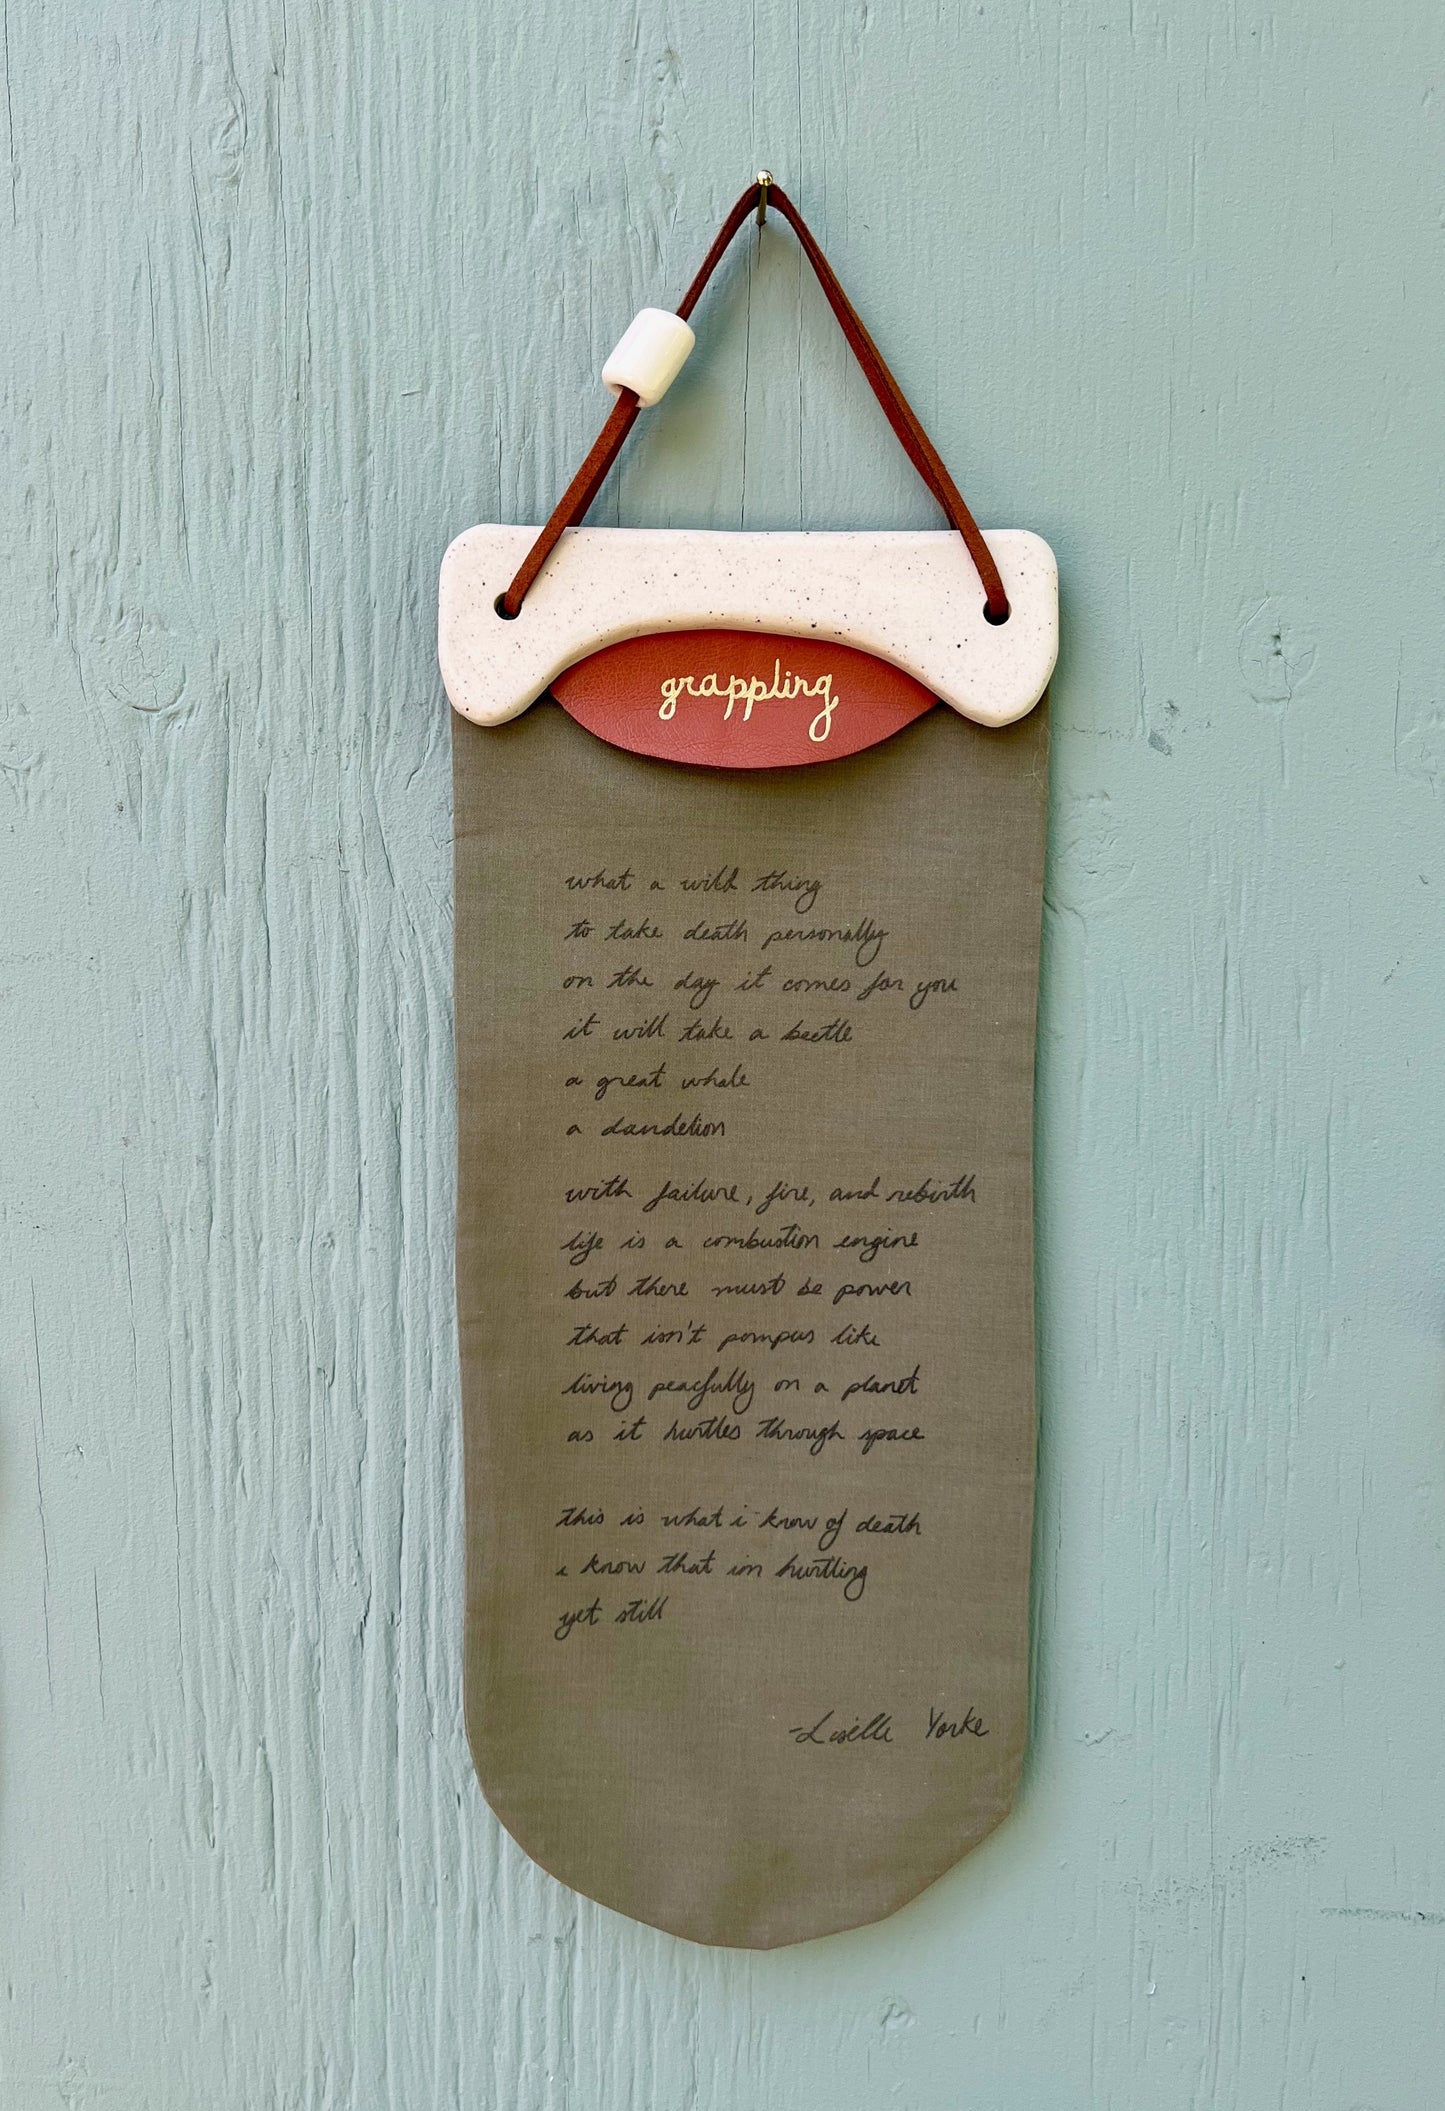 grappling
what a wild thing
to take death personally
on the day it comes for you
it will take a beetle
a great whale
a dandelion
with failure, fire, and rebirth
life is a combustion engine
but there must be power
that isn't pompus like
living peacfully on a planet
as it hurtles through space
this is what i know of death
i know that im hurtling
yet still
-Liselle Yorke